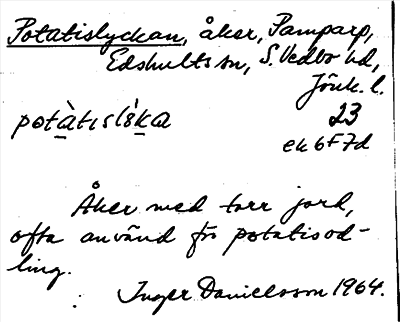 Potatislyckan, åker, Pamparp,
Edshults sn, S. Vedbo hd,
Jönk. l.
potàtisly̍ka 23
ek 6F7d
Åker med torr jord,
ofta använd för potatisod-
ling.
Inger Danielsson 1964.